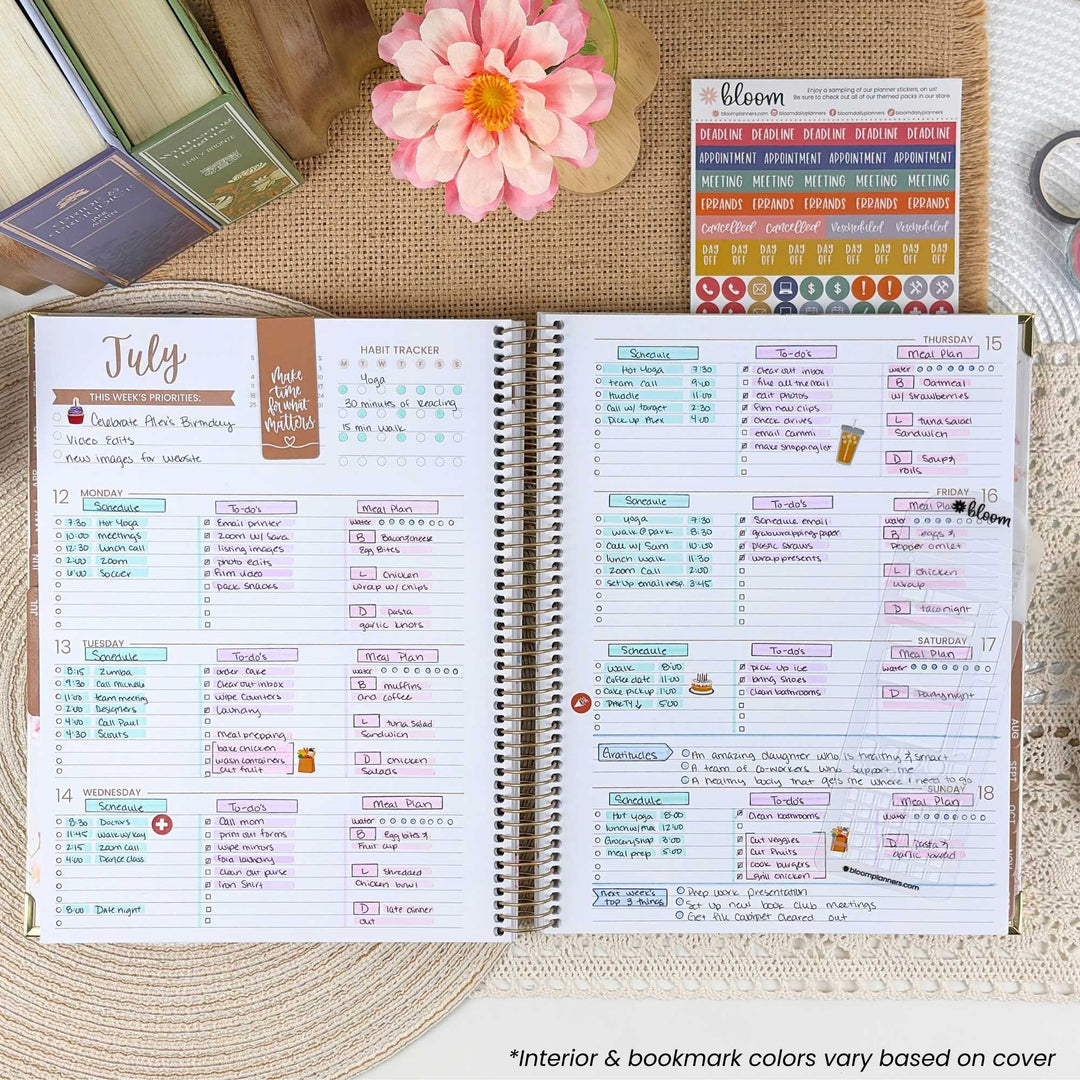 PRIDE &
JANE
AUSTEN
Wuthering
Heights
EMILY BRONTE
bloom
Enjoy a sampling of our planner stickers, on us!
Be sure to check out all of our themed packs in our store.
bloomplanners.com bloomdailyplanners bloomdailyplanners bloomdailyplanners
DEADLINE DEADLINE DEADLINE DEADLINE DEADLINE
APPOINTMENT APPOINTMENT APPOINTMENT APPOINTMENT
MEETING MEETING MEETING MEETING MEETING
ERRANDS ERRANDS ERRANDS ERRANDS ERRANDS
Cancelled Cancelled Rescheduled Rescheduled
DAY DAY DAY DAY DAY DAY DAY DAY DAY
OFF OFF OFF OFF OFF OFF OFF OFF OFF
$ $ ! !
July
THIS WEEK'S PRIORITIES:
Celebrate Alex's Birthday
Video Edits
new images for website
make
time
for what
matters
HABIT TRACKER
M T W T F S S
Yoga
30 minutes of Reading
15 min walk
12 MONDAY
Schedule To-do's Meal Plan
7:30 Hot Yoga Email printer water
10:00 meetings zoom w/ Sara B Bacon/cheese
12:30 lunch call listing images Egg Bites
2:00 zoom photo edits
6:00 Soccer film video L chicken
pack snacks wrap w/ chips
D pasta
garlic knots
13 TUESDAY
Schedule To-do's Meal Plan
8:15 Zumba order cake water
9:30 Call Michelle Clear out inbox B muffins
11:00 team meeting wipe counters and coffee
2:00 Designers Laundry
4:00 Call Paul L tuna salad
4:30 Scouts meal prepping Sandwich
bake chicken
wash containers D chicken
cut fruit Salads
14 WEDNESDAY
Schedule To-do's Meal Plan
8:30 Doctors Call mom water
11:45 walk w/ Kay print out forms B Egg bites &
2:15 zoom call wipe mirrors Fruit cup
4:00 Dance class fold laundry
clean out purse L shredded
iron Shirt Chicken bowl
8:00 Date night D late dinner
out
THURSDAY 15
Schedule To-do's Meal Plan
Hot Yoga 7:30 clear out inbox water
team call 9:00 file all the mail B Oatmeal
Huddle 11:00 edit photos w/ strawberries
Call w/ target 2:30 film new clips
Pick up Alex 4:00 check drives L tuna salad
email Cammi Sandwich
make shopping list
D Soup &
rolls
FRIDAY 16
Schedule To-do's Meal Plan
bloom
yoga 7:30 Schedule email water
walk @ park 8:30 grab wrapping paper B eggs &
Call w/ Sam 10:00 plastic straws pepper omlet
lunch walk 11:30 wrap presents
Zoom Call 2:00 L chicken
Set up email resp. 3:45 wrap
D taco night
SATURDAY 17
Schedule To-do's Meal Plan
walk 8:00 pick up ice water
Coffee date 11:00 bring shoes
Cake pickup 1:00 clean bathrooms D Party night
PARTY ↓ 5:00
Gratitudes An amazing daughter who is healthy & smart
A team of co-workers who support me
A healthy body that gets me where I need to go
SUNDAY 18
Schedule To-do's Meal Plan
Hot yoga 8:00 Clean bathrooms water
lunch w/ max 12:00
Grocery shop 3:00 Cut veggies D Pasta &
meal prep 5:00 Cut Fruits garlic
cook burgers
grill chicken
bloomplanners.com
next week's Prep work presentation
top 3 things Set up new book club meetings
Get file cabinet cleared out
JUL
AUG
SEPT
*Interior & bookmark colors vary based on cover